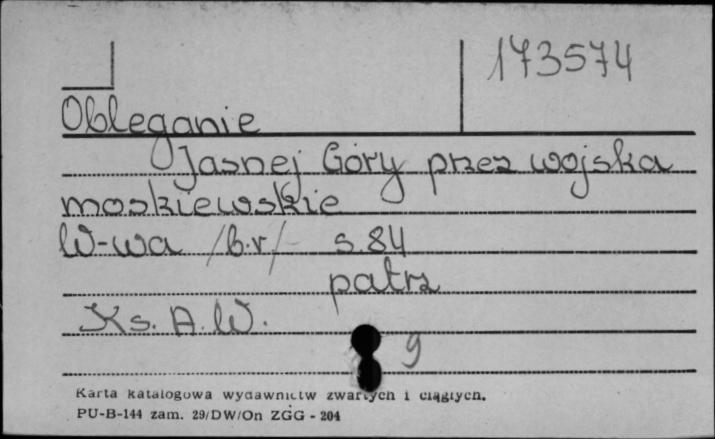 173574
Obleganie
Jasnej Góry przez wojska
moskiewskie
W-wa /b.r/- s.84
patrz
Ks. A. W.
9
Karta katalogowa wydawnictw zwartych i ciągłych.
PU-B-144 zam. 29/DW/On ZGG - 204